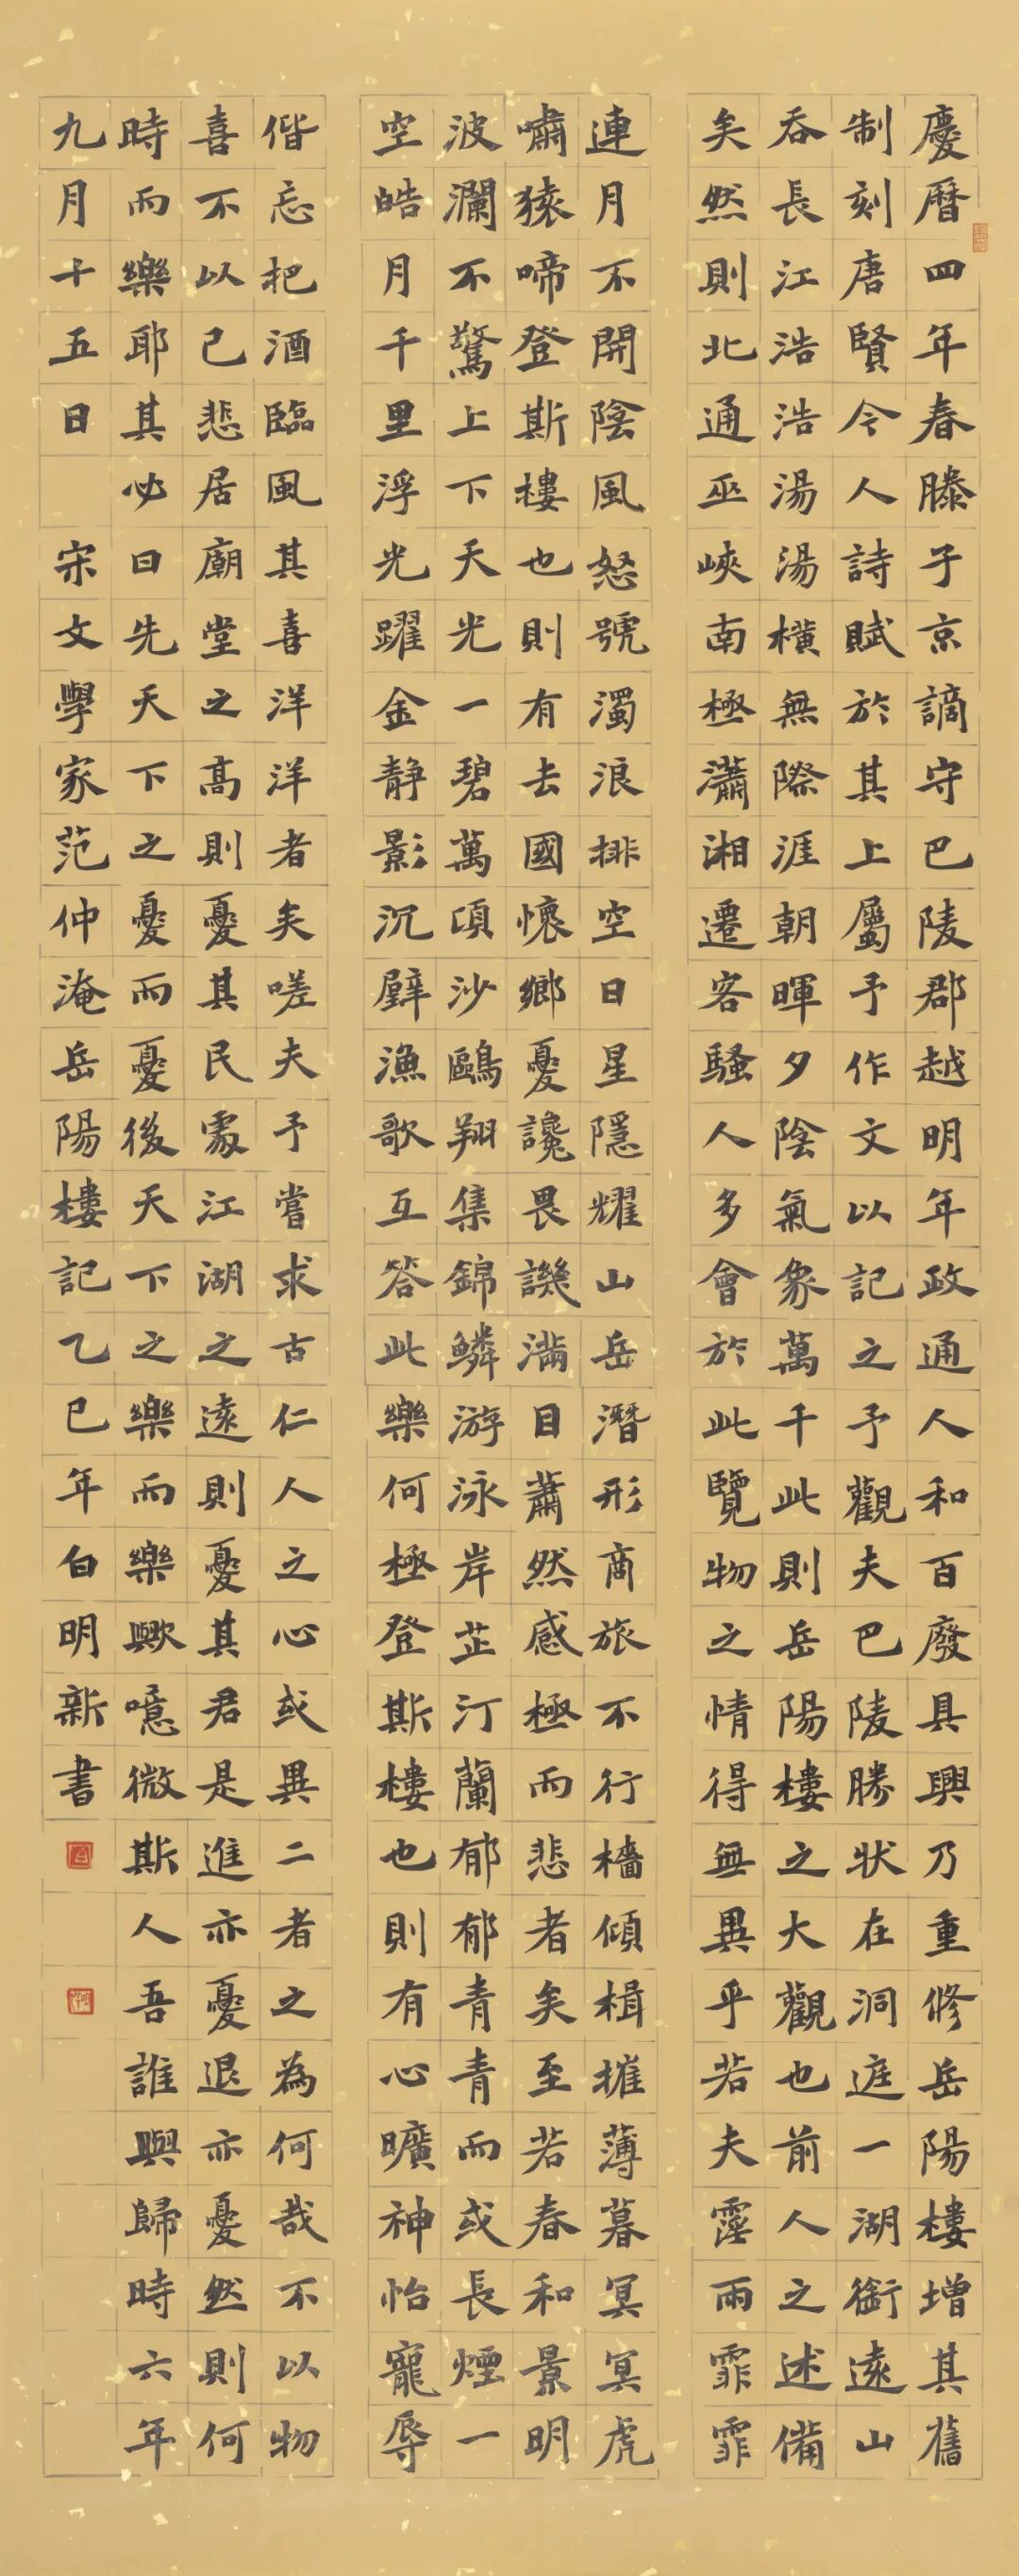 慶曆四年春滕子京謫守巴陵郡越明年政通人和百廢具興乃重修岳陽樓增其舊
制刻唐賢令人詩賦於其上屬予作文以記之予觀夫巴陵勝狀在洞庭一湖銜遠山
吞長江浩浩湯湯橫無際涯朝暉夕陰氣象萬千此則岳陽樓之大觀也前人之述備
矣然則北通巫峽南極瀟湘遷客騷人多會於此覽物之情得無異乎若夫霪雨霏霏
連月不開陰風怒號濁浪排空日星隱耀山岳潛形商旅不行檣傾楫摧薄暮冥冥虎
嘯猿啼登斯樓也則有去國懷鄉憂讒畏譏滿目蕭然感極而悲者矣至若春和景明
波瀾不驚上下天光一碧萬頃沙鷗翔集錦鱗游泳岸芷汀蘭郁郁青青而或長煙一
空皓月千里浮光躍金静影沉璧漁歌互答此樂何極登斯樓也則有心曠神怡寵辱
偕忘把酒臨風其喜洋洋者矣嗟夫予嘗求古仁人之心或異二者之為何哉不以物
喜不以己悲居廟堂之高則憂其民處江湖之遠則憂其君是進亦憂退亦憂然則何
時而樂耶其必曰先天下之憂而憂後天下之樂而樂歟噫微斯人吾誰與歸時六年
九月十五日 宋文學家范仲淹岳陽樓記乙巳年白明新書